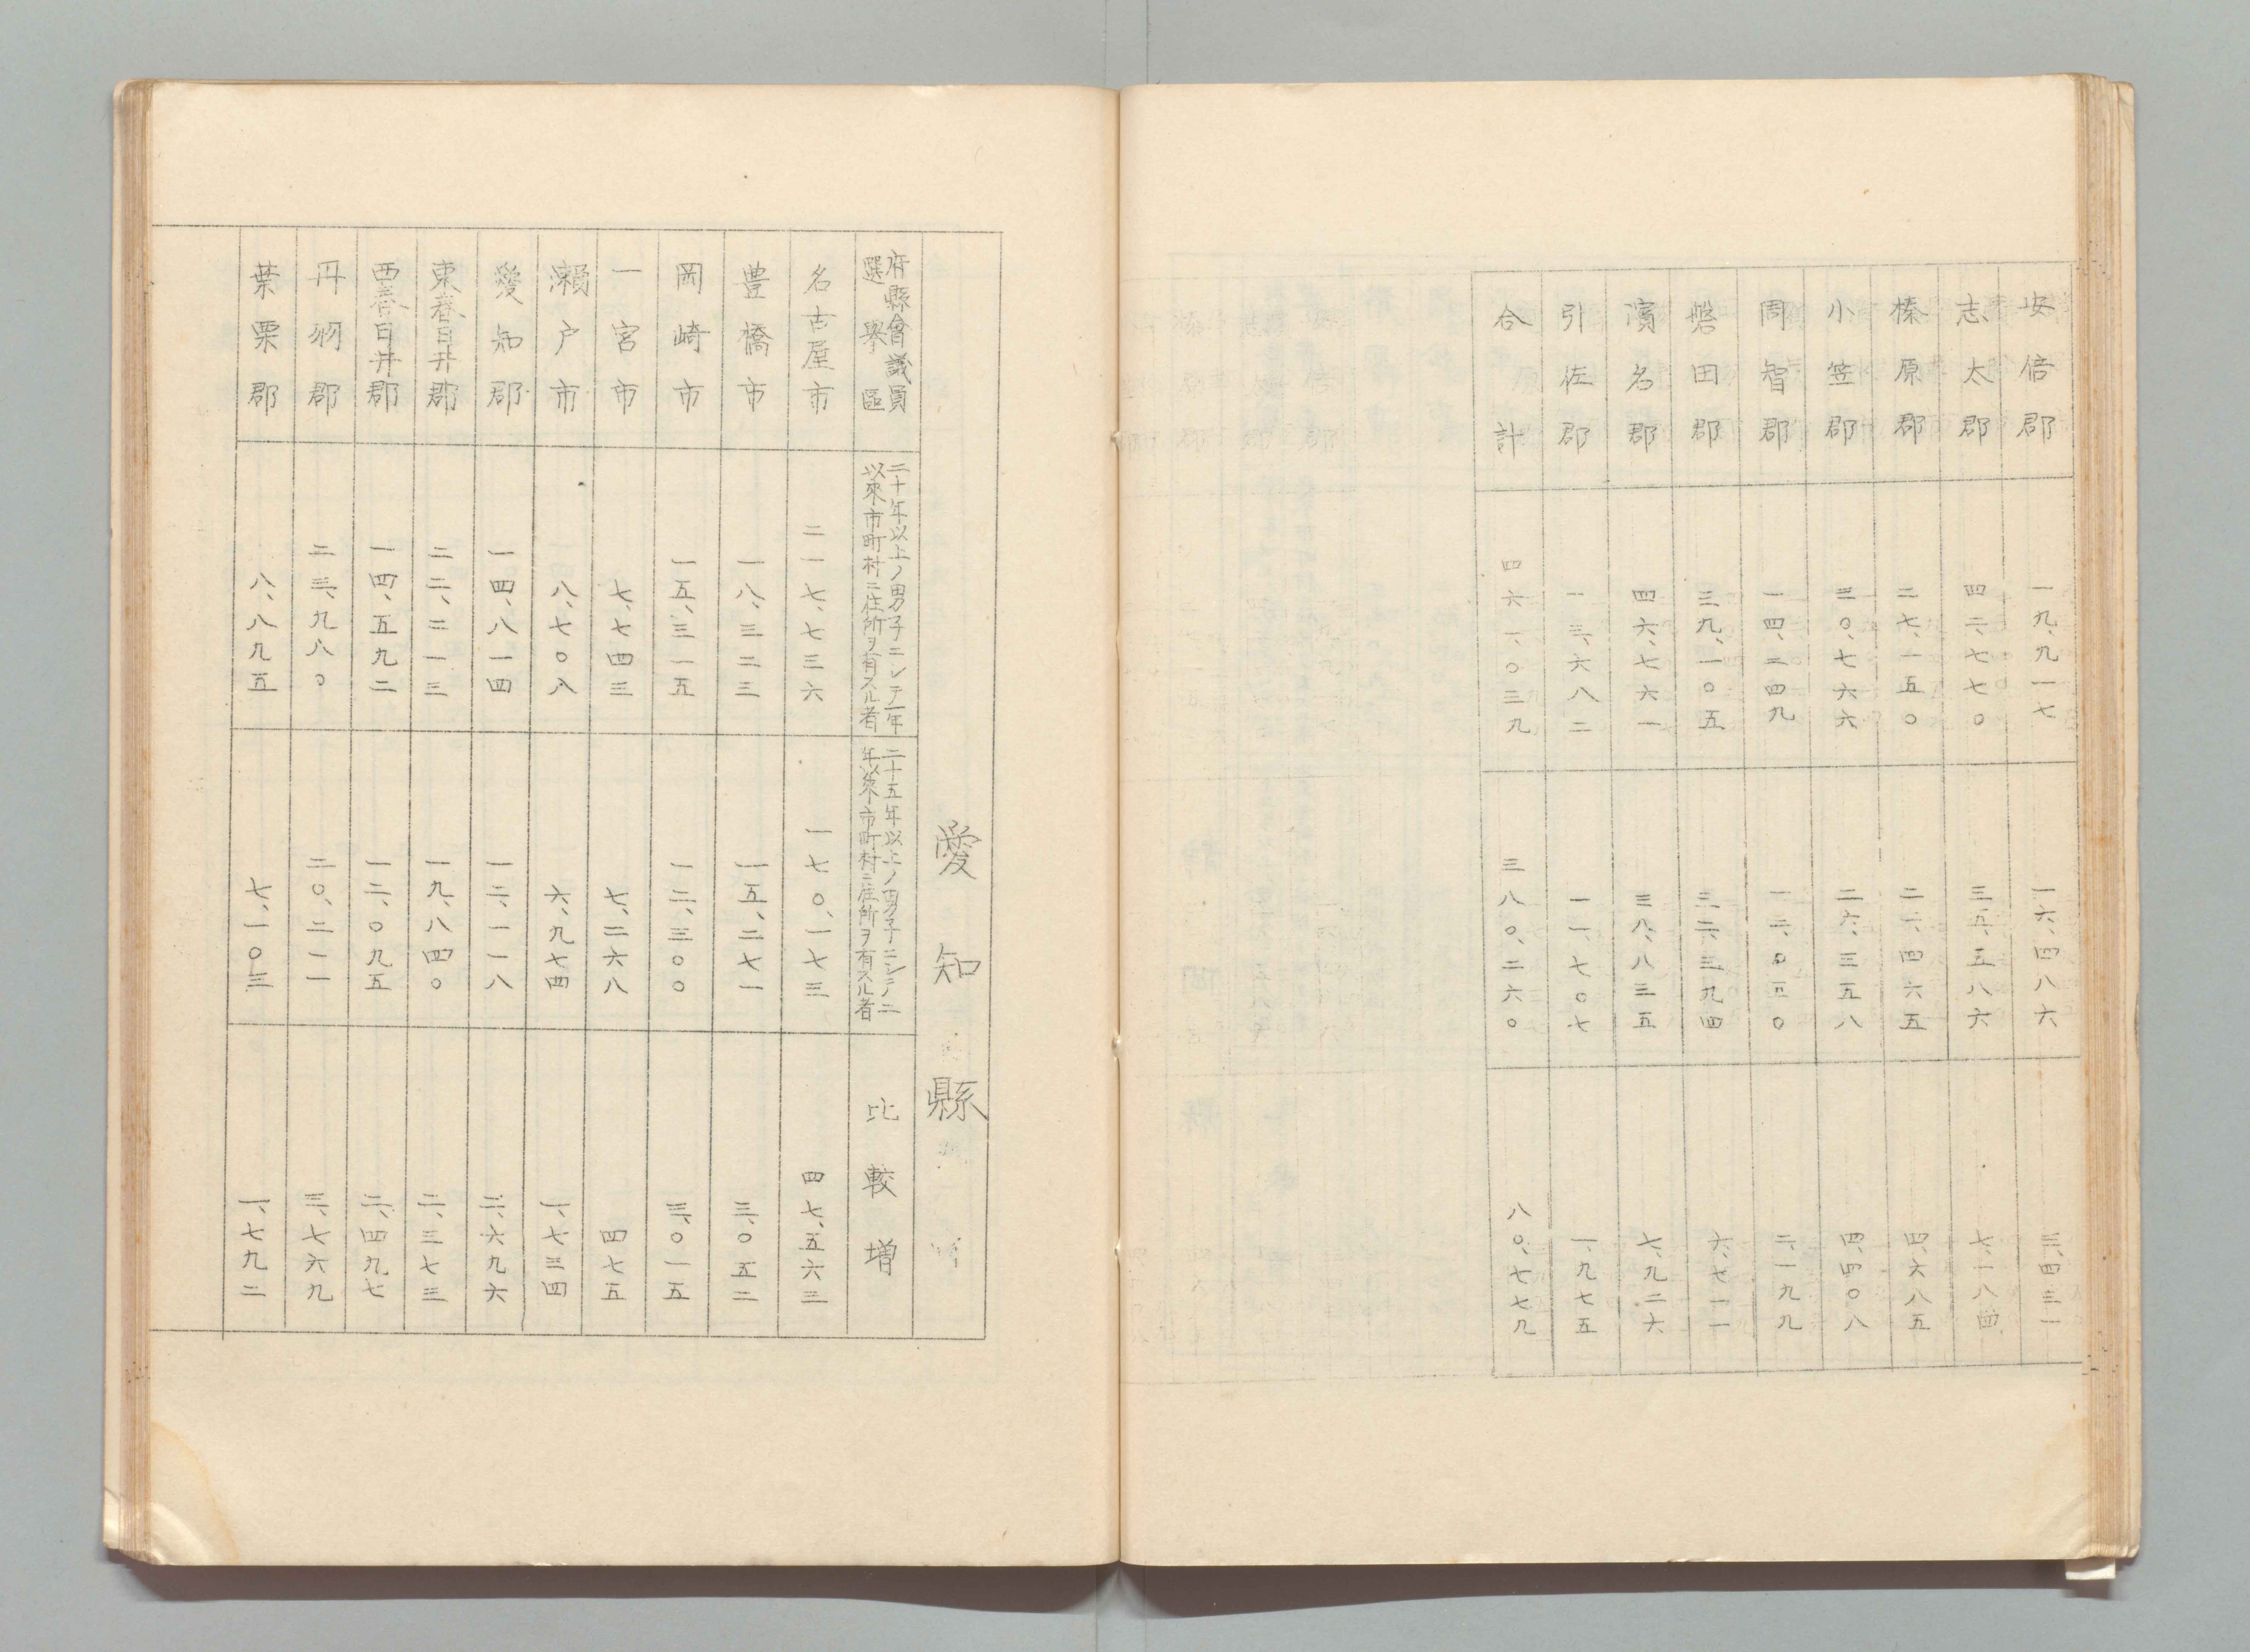 安倍郡 一九、九一七 一六、四八六 三、四三一
志太郡 四二、七七〇 三五、五八六 七、一八四
榛原郡 二七、一五〇 二二、四六五 四、六八五
小笠郡 三〇、七六六 二六、三五八 四、四〇八
周智郡 一四、二四九 一二、〇五〇 二、一九九
磐田郡 三九、一〇五 三二、三九四 六、七一一
濱名郡 四六、七六一 三八、八三五 七、九二六
引佐郡 一三、六八二 一一、七〇七 一、九七五
合計 四六一、〇三九 三八〇、二六〇 八〇、七七九
愛知縣
府縣會議員
選擧區
二十年以上ノ男子ニシテ一年
以來市町村ニ住所ヲ有スル者
二十五年以上ノ男子ニシテ二
年以來市町村ニ住所ヲ有スル者
比較増
名古屋市 二一七、七三六 一七〇、一七三 四七、五六三
豊橋市 一八、三二三 一五、二七一 三、〇五二
岡崎市 一五、三一五 一二、三〇〇 三、〇一五
一宮市 七、七四三 七、二六八 四七五
瀬戸市 八、七〇八 六、九七四 一、七三四
愛知郡 一四、八一四 一二、一一八 二、六九六
東春日井郡 二二、二一三 一九、八四〇 二、三七三
西春日井郡 一四、五九二 一二、〇九五 二、四九七
丹羽郡 二三、九八〇 二〇、二一一 三、七六九
葉栗郡 八、八九五 七、一〇三 一、七九二